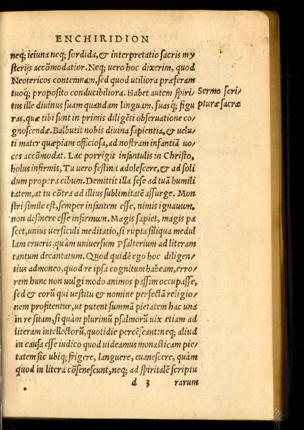 ENCHIRIDION
neq; ieiuna neq; sordida, & interpretatio sacris my
sterijs accōmodatior. Neq; uero hoc dixerim, quod
Neotericos contemnam, sed quod utiliora præferam
tuoq́; proposito conducibiliora. Habet autem spiri-
Sermo scri/
tus ille diuinus suam quandam linguam, suasq́; figu
pturæ sacræ
ras, quæ tibi sunt in primis diligēti obseruatione co-
gnoscendæ. Balbutit nobis diuina sapientia, & uelu-
ti mater quæpiam officiosa, ad nostram infantiā uo
ces accōmodat. Lac porrigit infantulis in Christo,
holus infirmis, Tu uero festina adolescere, & ad soli
dum propera cibum. Demittit illa sese ad tuā humili
tatem, at tu cōtra ad illius sublimitatē assurge. Mon
stri simile est, semper infantem esse, nimis ignauum,
non desinere esse infirmum. Magis sapiet, magis pa
scet, unius uersiculi meditatio, si rupta siliqua medul
lam erueris, quàm uniuersum Psalterium ad literam
tantum decantatum. Quod quidē ego hoc diligen/
tius admoneo, quod re ipsa cognitum habeam, erro/
rem hunc non uulgi modo animos passim occupasse,
sed & eorū qui uestitu & nomine perfectā religio/
nem profitentur, ut putent summā pietatem hac una
in re sitam, si quàm plurimū psalmorū uix etiam ad
literam intellectorū, quotidie percēseant: neq; aliud
in causa esse iudico quod uideamus monasticam pie/
tatem sic ubiq; frigere, languere, euanescere, quàm
quod in litera cōsenescunt, neq; ad spiritalē scriptu
d 3 rarum